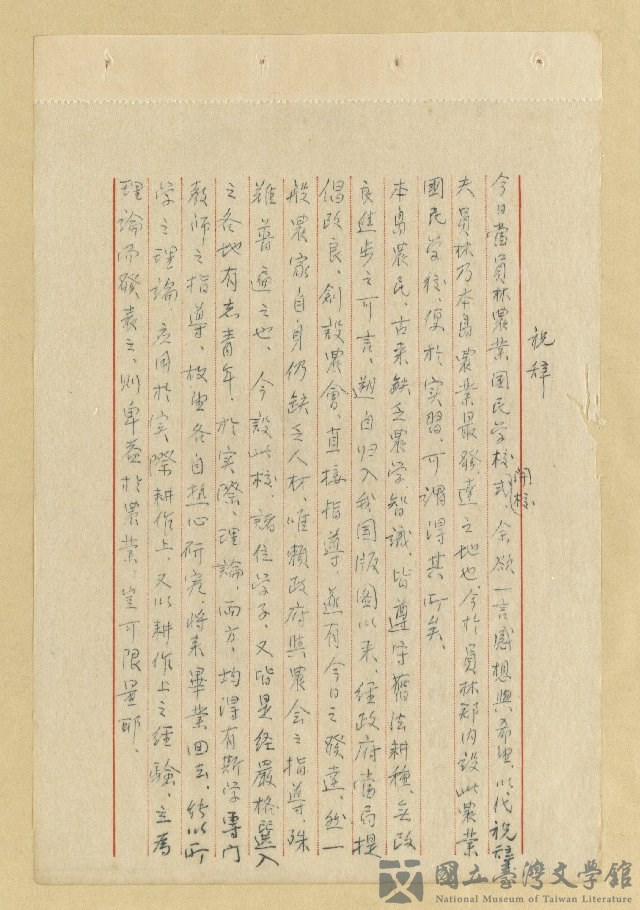 祝辞
今日當員林農業国民学校開校式、余欲一言感想與希望、以代祝辞
夫員林乃本島農業最發達之地也、今於員林郡內設此農業
國民学校、便於実習、可謂得其所矣、
本島農民、古来缺乏農学智識、皆遵守舊法耕種、無改
良進步之可言、迨自归入我国版圖以来、經政府當局提
倡改良、創設農會、直接指導、遂有今日之發達、然一
般農家自身仍缺乏人材、唯賴政府與農会之指導、殊
難普遍之也、今設此校、諸位学子、又皆是経嚴格選入
之各地有志青年、於実際、理論、両方、均得有斯学專门
教師之指導、故望各自热心研究、將来畢業回去、能以所
学之理論、应用於実際耕作上、又以耕作上之經驗、立為
理論而發表之、則裨益於農業、豈可限量耶、
國立臺灣文學館
National Museum of Taiwan Literature